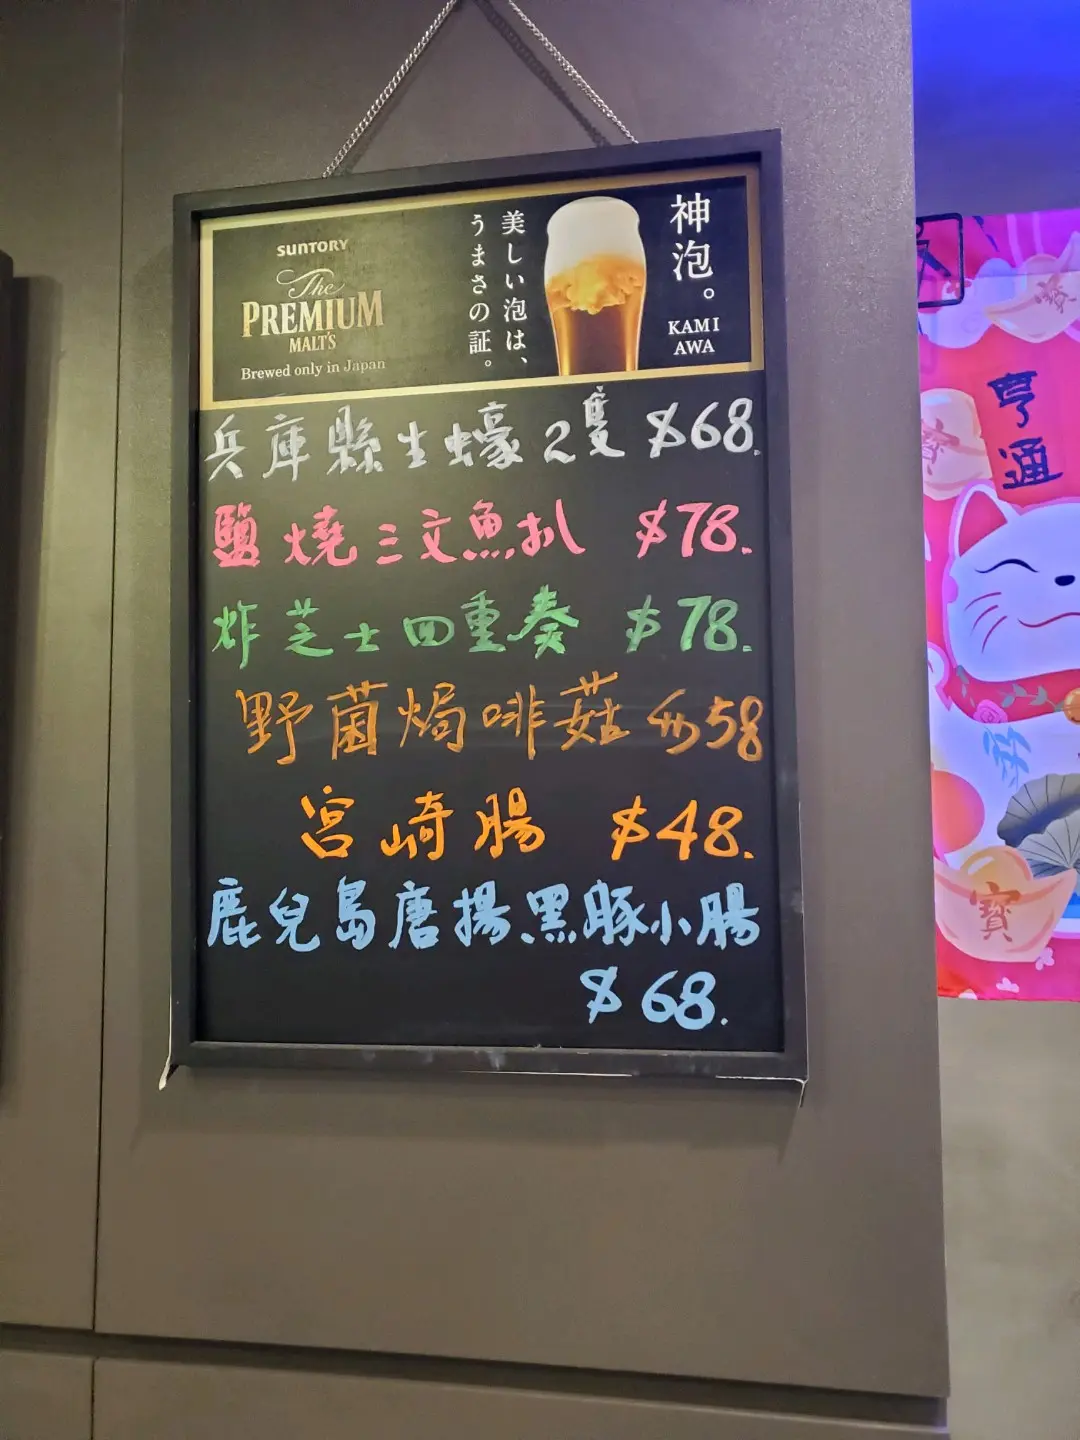 SUNTORY
The
PREMIUM
MALT'S
Brewed only in Japan
神泡。
KAMI
AWA
美しい泡は、
うまさの証。
兵庫縣生蠔2隻 $68.
鹽燒三文魚扒 $78.
炸芝士四重奏 $78.
野菌焗啡菇 $58
宮崎腸 $48.
鹿兒島唐揚黑豚小腸
$68.
亨通
寶
寶
寶